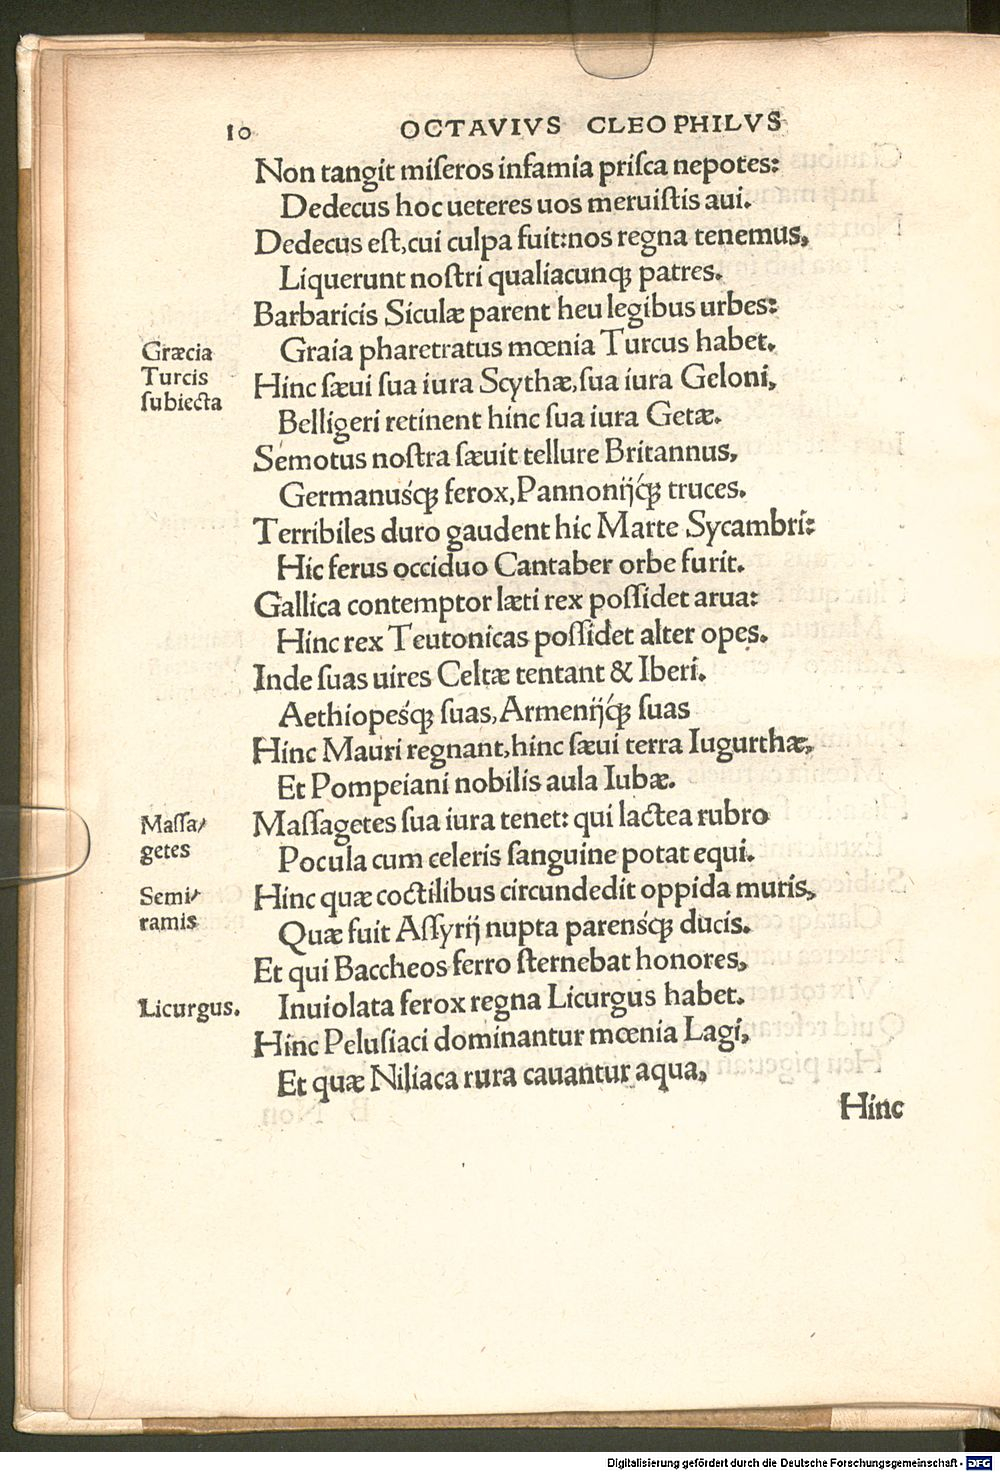 10 OCTAVIVS CLEOPHILVS
Non tangit miſeros infamia priſca nepotes:
Dedecus hoc ueteres uos meruiſtis aui.
Dedecus eſt,cui culpa fuit:nos regna tenemus,
Liquerunt noſtri qualiacunqꝫ patres.
Barbaricis Siculæ parent heu legibus urbes:
Graia pharetratus mœnia Turcus habet.
Græcia
Turcis
ſubiecta
Hinc ſæui ſua iura Scythæ,ſua iura Geloni,
Belligeri retinent hinc ſua iura Getæ.
Semotus noſtra ſæuit tellure Britannus,
Germanuśqꝫ ferox,Pannonijq́ꝫ truces.
Terribiles duro gaudent hic Marte Sycambri:
Hic ferus occiduo Cantaber orbe furit.
Gallica contemptor læti rex poſſidet arua:
Hinc rex Teutonicas poſſidet alter opes.
Inde ſuas uires Celtæ tentant & Iberi.
Aethiopeśqꝫ ſuas,Armenijq́ꝫ ſuas
Hinc Mauri regnant,hinc ſæui terra Iugurthæ,
Et Pompeiani nobilis aula Iubæ.
Maſſa/
getes
Maſſagetes ſua iura tenet: qui lactea rubro
Pocula cum celeris ſanguine potat equi.
Semi/
ramis
Hinc quæ coctilibus circundedit oppida muris,
Quæ fuit Aſſyrij nupta parenśqꝫ ducis.
Et qui Baccheos ferro ſternebat honores,
Licurgus.
Inuiolata ferox regna Licurgus habet.
Hinc Peluſiaci dominantur mœnia Lagi,
Et quæ Niliaca rura cauantur aqua,
Hinc
Digitalisierung gefördert durch die Deutsche Forschungsgemeinschaft - DFG